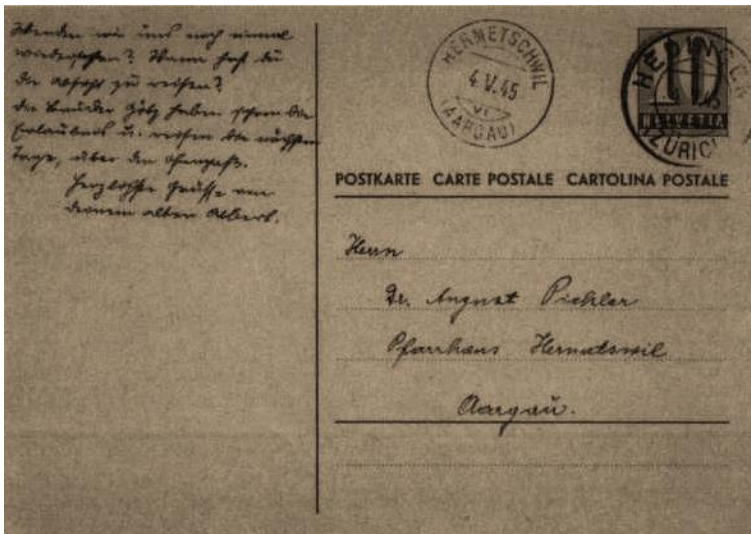 Werden wir uns noch einmal
wiedersehen? Wann hast du
die Absicht zu reisen?
Die Brüder Götz haben schon die
Erlaubnis u. reisen die nächsten
Tage, über den Ofenpass.
Herzlichste Grüsse von
deinem alten Albert.
HERMETSCHWIL
4.V.45
VI
(AARGAU)
HEDINGEN
(ZÜRICH)
HELVETIA
POSTKARTE CARTE POSTALE CARTOLINA POSTALE
Herrn
Dr. August Pichler
Pfarrhaus Hermatswil
Aargau.